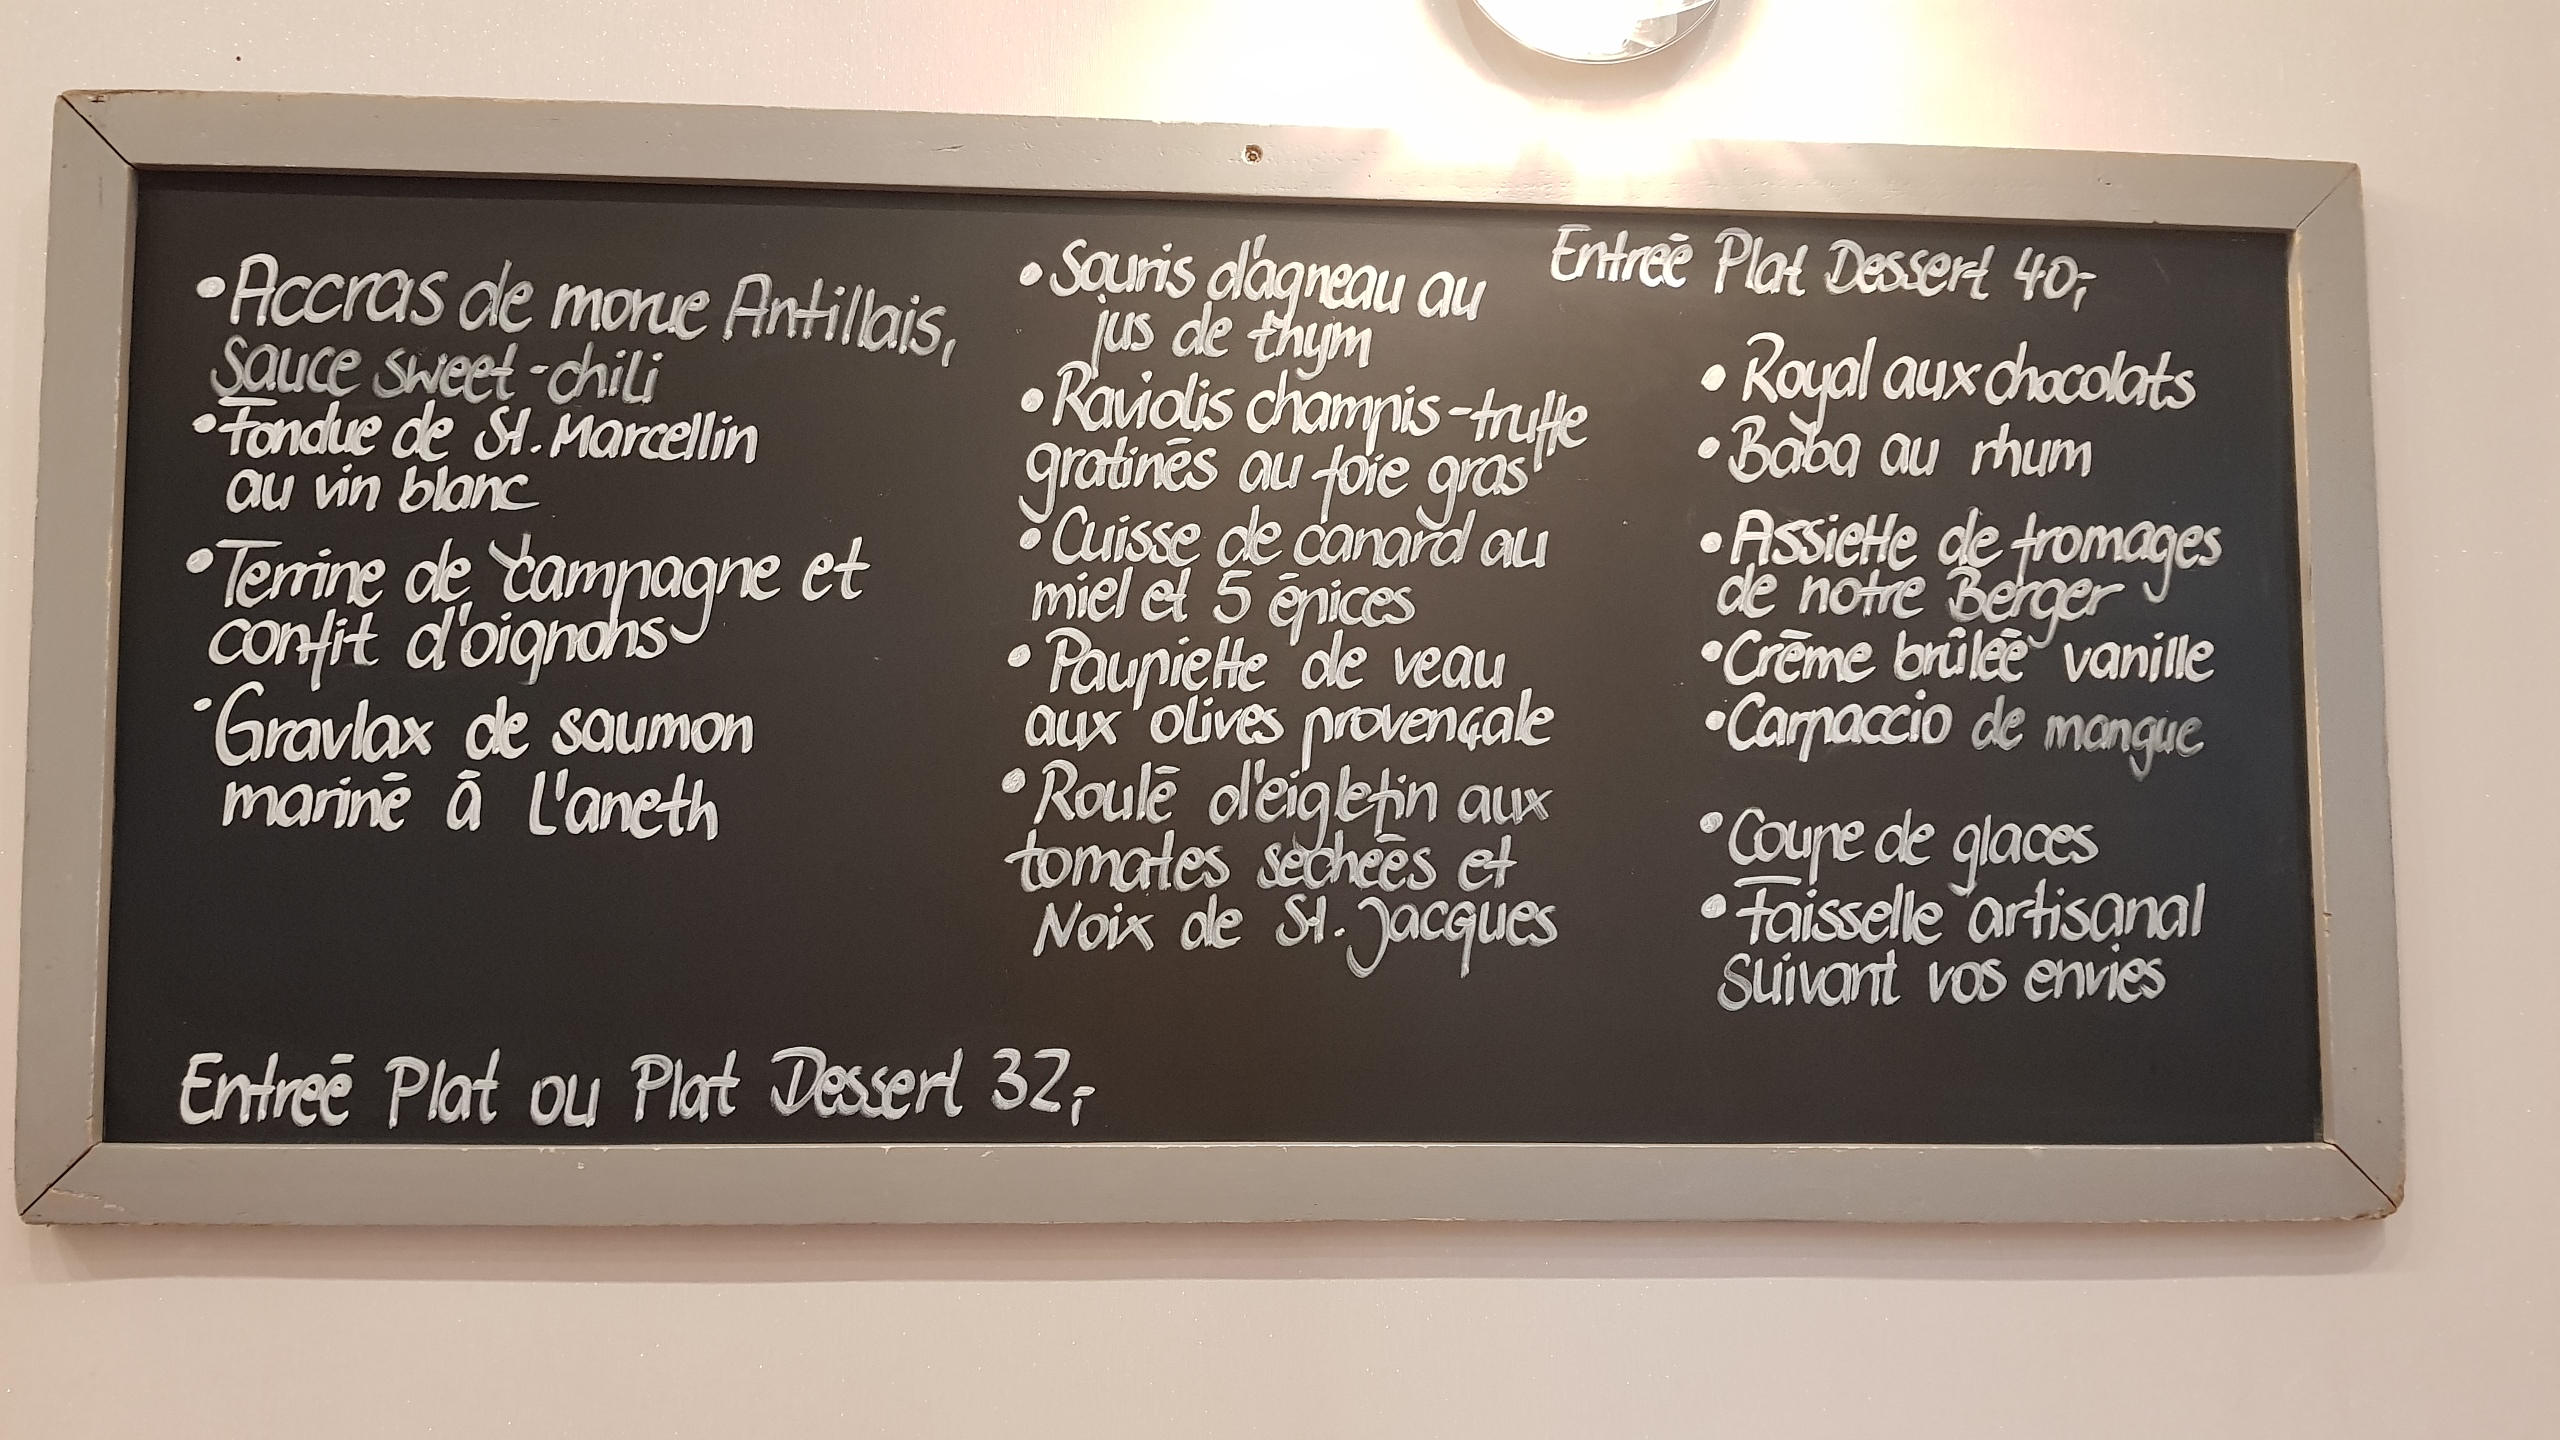 • Accras de morue Antillais,
sauce sweet-chili
• Fondue de St. Marcellin
au vin blanc
• Terrine de campagne et
confit d'oignons
• Gravlax de saumon
mariné à L'aneth
Entreé Plat ou Plat Dessert 32,-
• Souris d'agneau au
jus de thym
• Raviolis champis-truffe
gratinés au foie gras
• Cuisse de canard au
miel et 5 épices
• Paupiette de veau
aux olives provençale
• Roulé d'eiglefin aux
tomates secheés et
Noix de St. Jacques
Entreé Plat Dessert 40,-
• Royal aux chocolats
• Baba au rhum
• Assiette de fromages
de notre Berger
• Crème brûleé vanille
• Carpaccio de mangue
• Coupe de glaces
• Faisselle artisanal
suivant vos envies